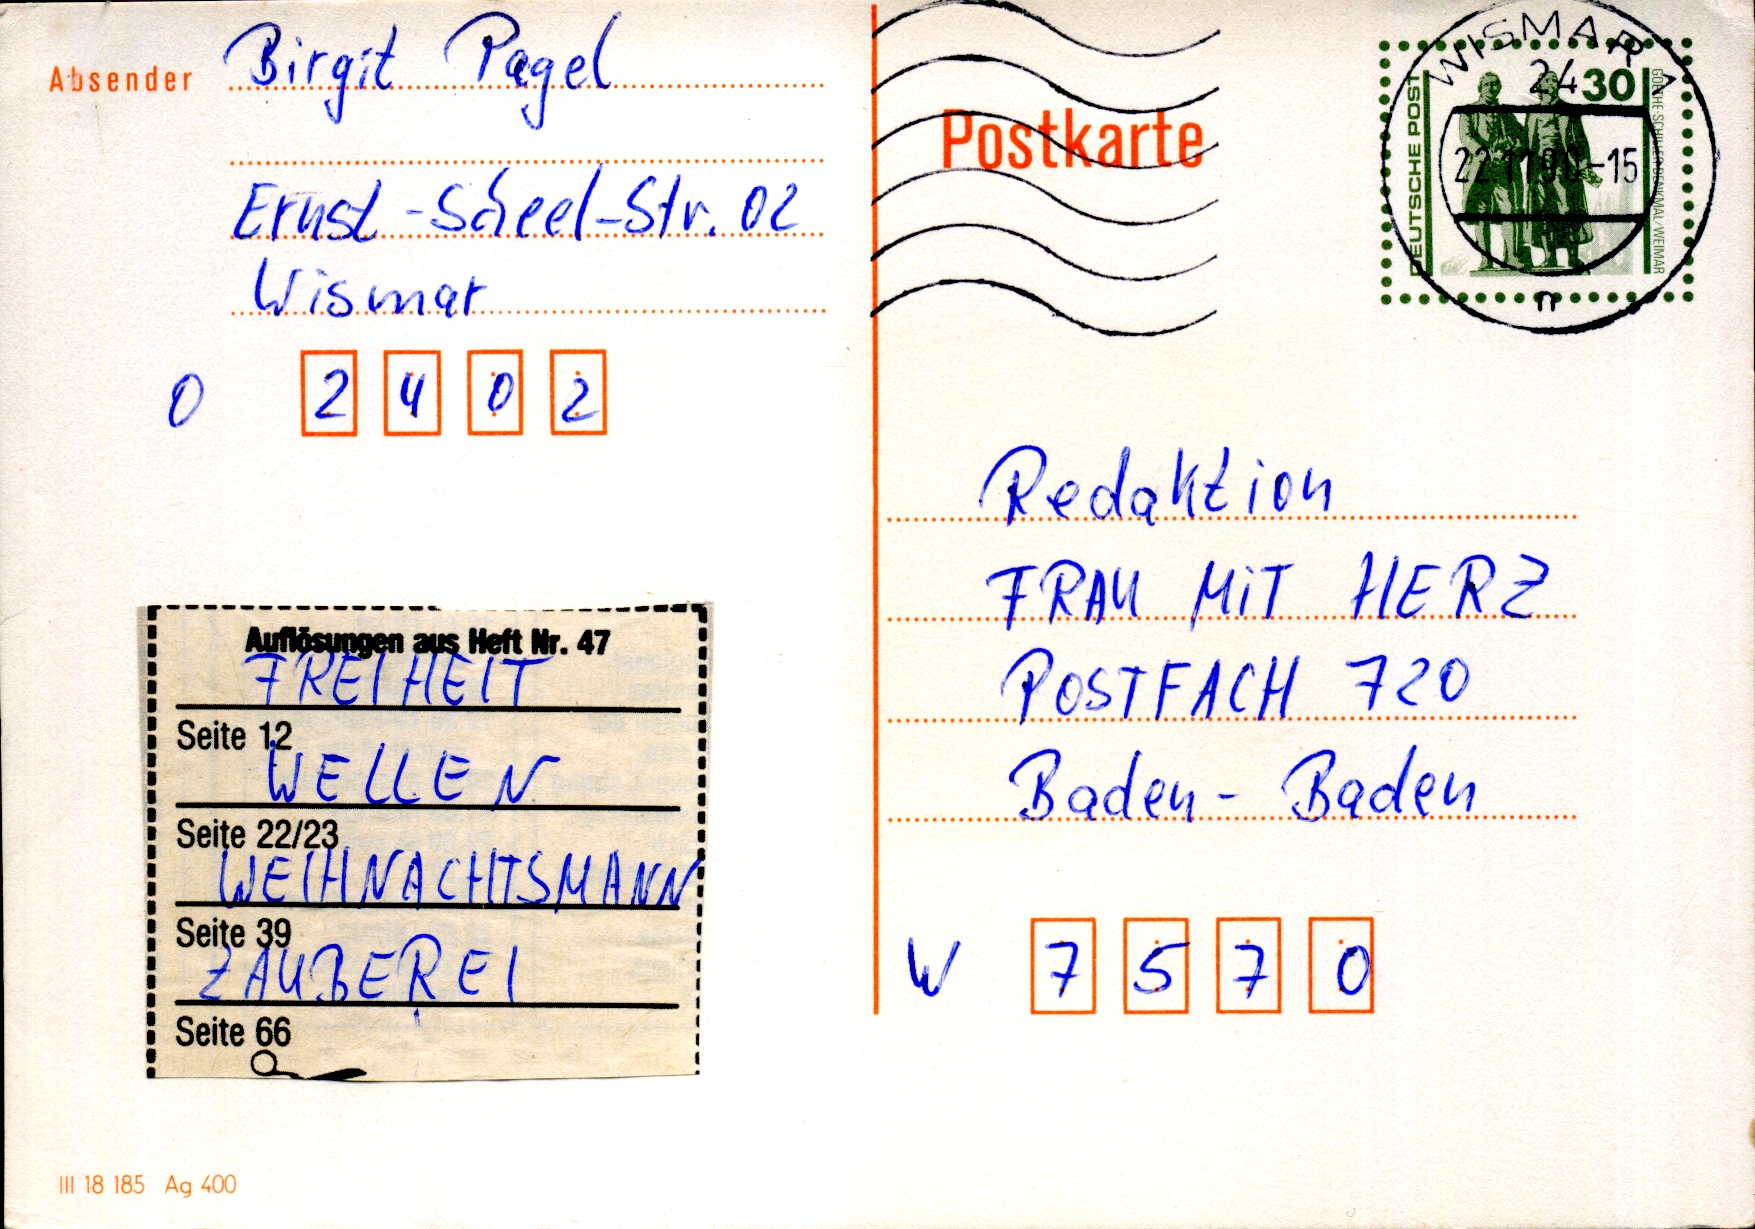 Absender Birgit Pagel
Ernst-Scheel-Str. 02
Wismar
O 2402
Postkarte
WISMAR 1
24
22.11.90-15
n
DEUTSCHE POST
30
GOETHE-SCHILLER-DENKMAL/WEIMAR
Redaktion
FRAU MiT HERZ
POSTFACH 720
Baden-Baden
W 7570
Auflösungen aus Heft Nr. 47
FREIHEIT
Seite 12
WELLEN
Seite 22/23
WEIHNACHTSMANN
Seite 39
ZAUBEREI
Seite 66
III 18 185 Ag 400